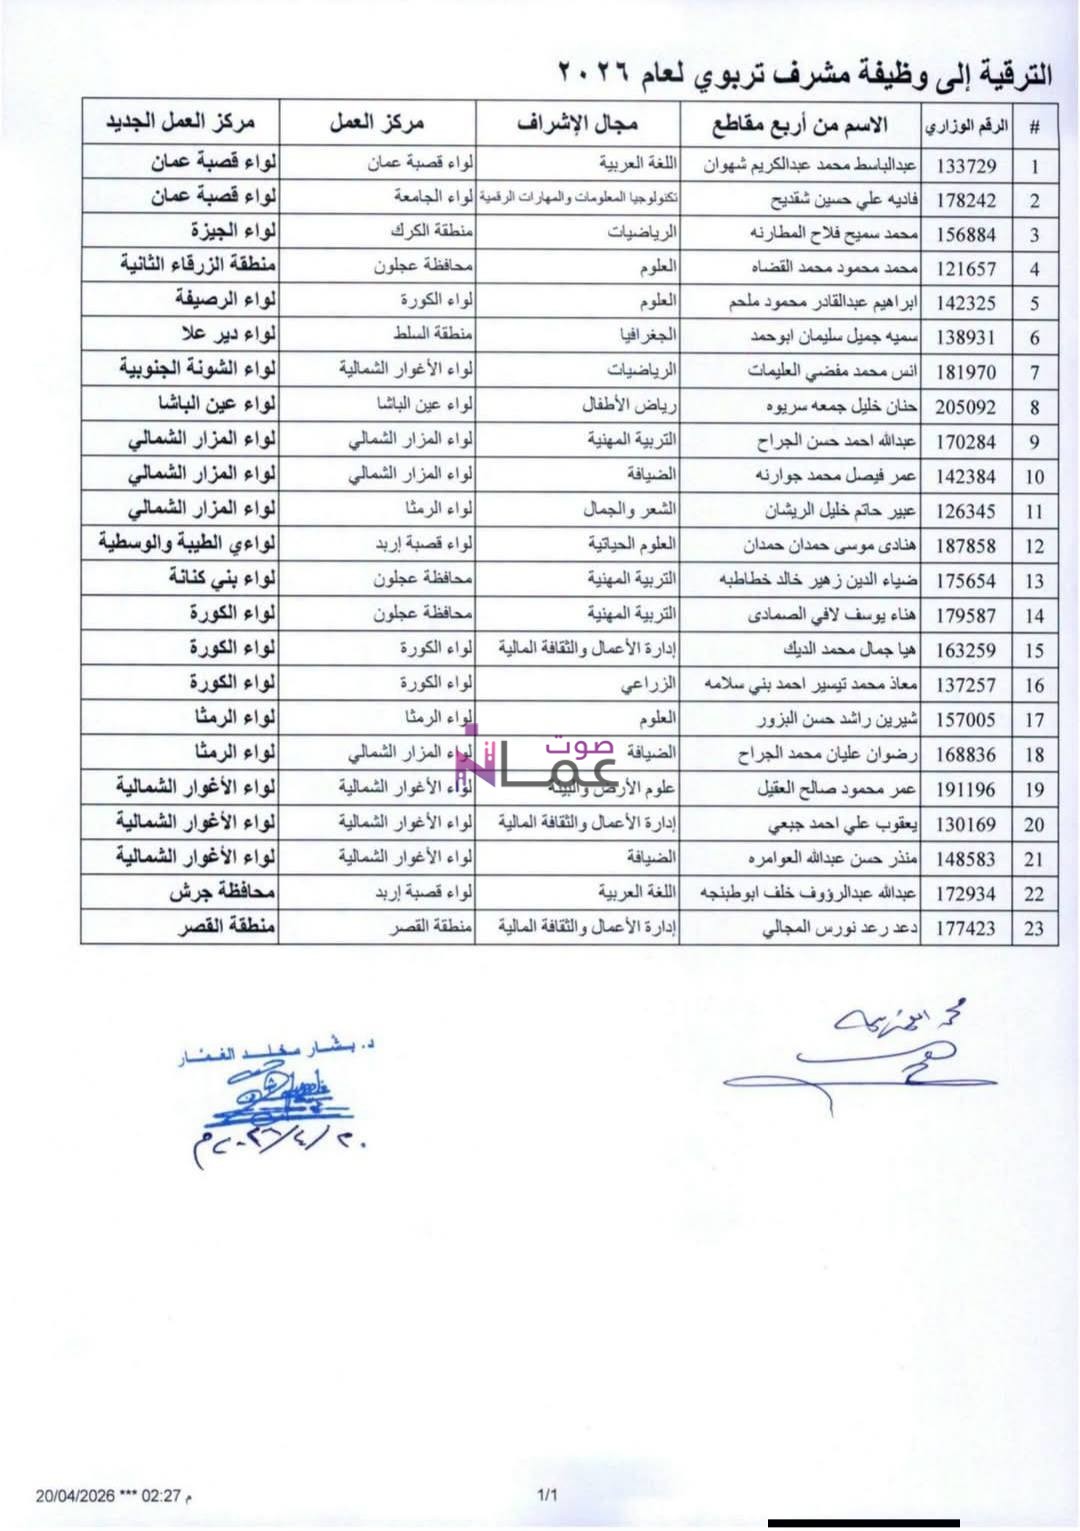 الترقية إلى وظيفة مشرف تربوي لعام ٢٠٢٦
# الرقم الوزاري الاسم من أربع مقاطع مجال الإشراف مركز العمل مركز العمل الجديد
1 133729 عبدالباسط محمد عبدالكريم شهوان اللغة العربية لواء قصبة عمان لواء قصبة عمان
2 178242 فاديه علي حسين شقديح تكنولوجيا المعلومات والمهارات الرقمية لواء الجامعة لواء قصبة عمان
3 156884 محمد سميح فلاح المطارنه الرياضيات منطقة الكرك لواء الجيزة
4 121657 محمد محمود محمد القضاه العلوم محافظة عجلون منطقة الزرقاء الثانية
5 142325 ابراهيم عبدالقادر محمود ملحم العلوم لواء الكورة لواء الرصيفة
6 138931 سميه جميل سليمان ابوحمد الجغرافيا منطقة السلط لواء دير علا
7 181970 انس محمد مفضي العليمات الرياضيات لواء الأغوار الشمالية لواء الشونة الجنوبية
8 205092 حنان خليل جمعه سريوه رياض الأطفال لواء عين الباشا لواء عين الباشا
9 170284 عبدالله احمد حسن الجراح التربية المهنية لواء المزار الشمالي لواء المزار الشمالي
10 142384 عمر فيصل محمد جوارنه الضيافة لواء المزار الشمالي لواء المزار الشمالي
11 126345 عبير حاتم خليل الريشان الشعر والجمال لواء الرمثا لواء المزار الشمالي
12 187858 هنادى موسى حمدان حمدان العلوم الحياتية لواء قصبة إربد لواءي الطيبة والوسطية
13 175654 ضياء الدين زهير خالد خطاطبه التربية المهنية محافظة عجلون لواء بني كنانة
14 179587 هناء يوسف لافي الصمادى التربية المهنية محافظة عجلون لواء الكورة
15 163259 هيا جمال محمد الديك إدارة الأعمال والثقافة المالية لواء الكورة لواء الكورة
16 137257 معاذ محمد تيسير احمد بني سلامه الزراعي لواء الكورة لواء الكورة
17 157005 شيرين راشد حسن البزور العلوم لواء الرمثا لواء الرمثا
18 168836 رضوان عليان محمد الجراح الضيافة لواء المزار الشمالي لواء الرمثا
19 191196 عمر محمود صالح العقيل علوم الأرض والبيئة لواء الأغوار الشمالية لواء الأغوار الشمالية
20 130169 يعقوب علي احمد جبعي إدارة الأعمال والثقافة المالية لواء الأغوار الشمالية لواء الأغوار الشمالية
21 148583 منذر حسن عبدالله العوامره الضيافة لواء الأغوار الشمالية لواء الأغوار الشمالية
22 172934 عبدالله عبدالرؤوف خلف ابوطبنجه اللغة العربية لواء قصبة إربد محافظة جرش
23 177423 دعد رعد نورس المجالي إدارة الأعمال والثقافة المالية منطقة القصر منطقة القصر
صوت
عمان
محمد
د. بشار مخلد الغفار
٢٠/٤/٢٠٢٦م
20/04/2026 *** 02:27 م
1/1